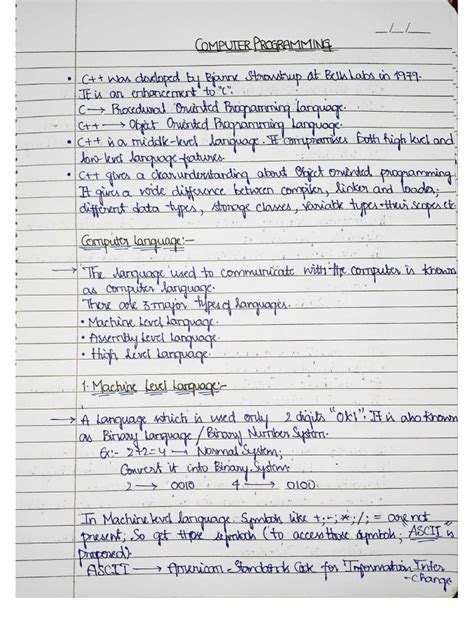 __/__/__
COMPUTER PROGRAMMING
• C++ was developed by Bjarne Stroustrup at Bell Labs in 1979.
It is an enhancement to "C".
C → Procedural Oriented Programming Language.
C++ → Object Oriented Programming Language.
• C++ is a middle-level language. It compromises both high level and
low-level language features.
• C++ gives a clear understanding about Object oriented programming.
It gives a wide difference between compiler, linker and loader,
different data types, storage classes, variable types - their scopes etc.
Computer Language:-
→ The language used to communicate with the computer is known
as computer language.
There are 3 major types of languages.
• Machine Level Language.
• Assembly Level Language.
• High Level Language.
1. Machine Level Language:-
→ A language which is used only 2 digits "0&1". It is also known
as Binary Language / Binary Number System.
Ex:- 2+2=4 → Normal System;
Convert it into Binary System
2 → 0010 4 → 0100.
In Machine level language Symbols like +;-;*;/;= are not
present, So get these symbols (to access those symbols, ASCII is
proposed)
ASCII → American - Standards Code for Information Inter
- change